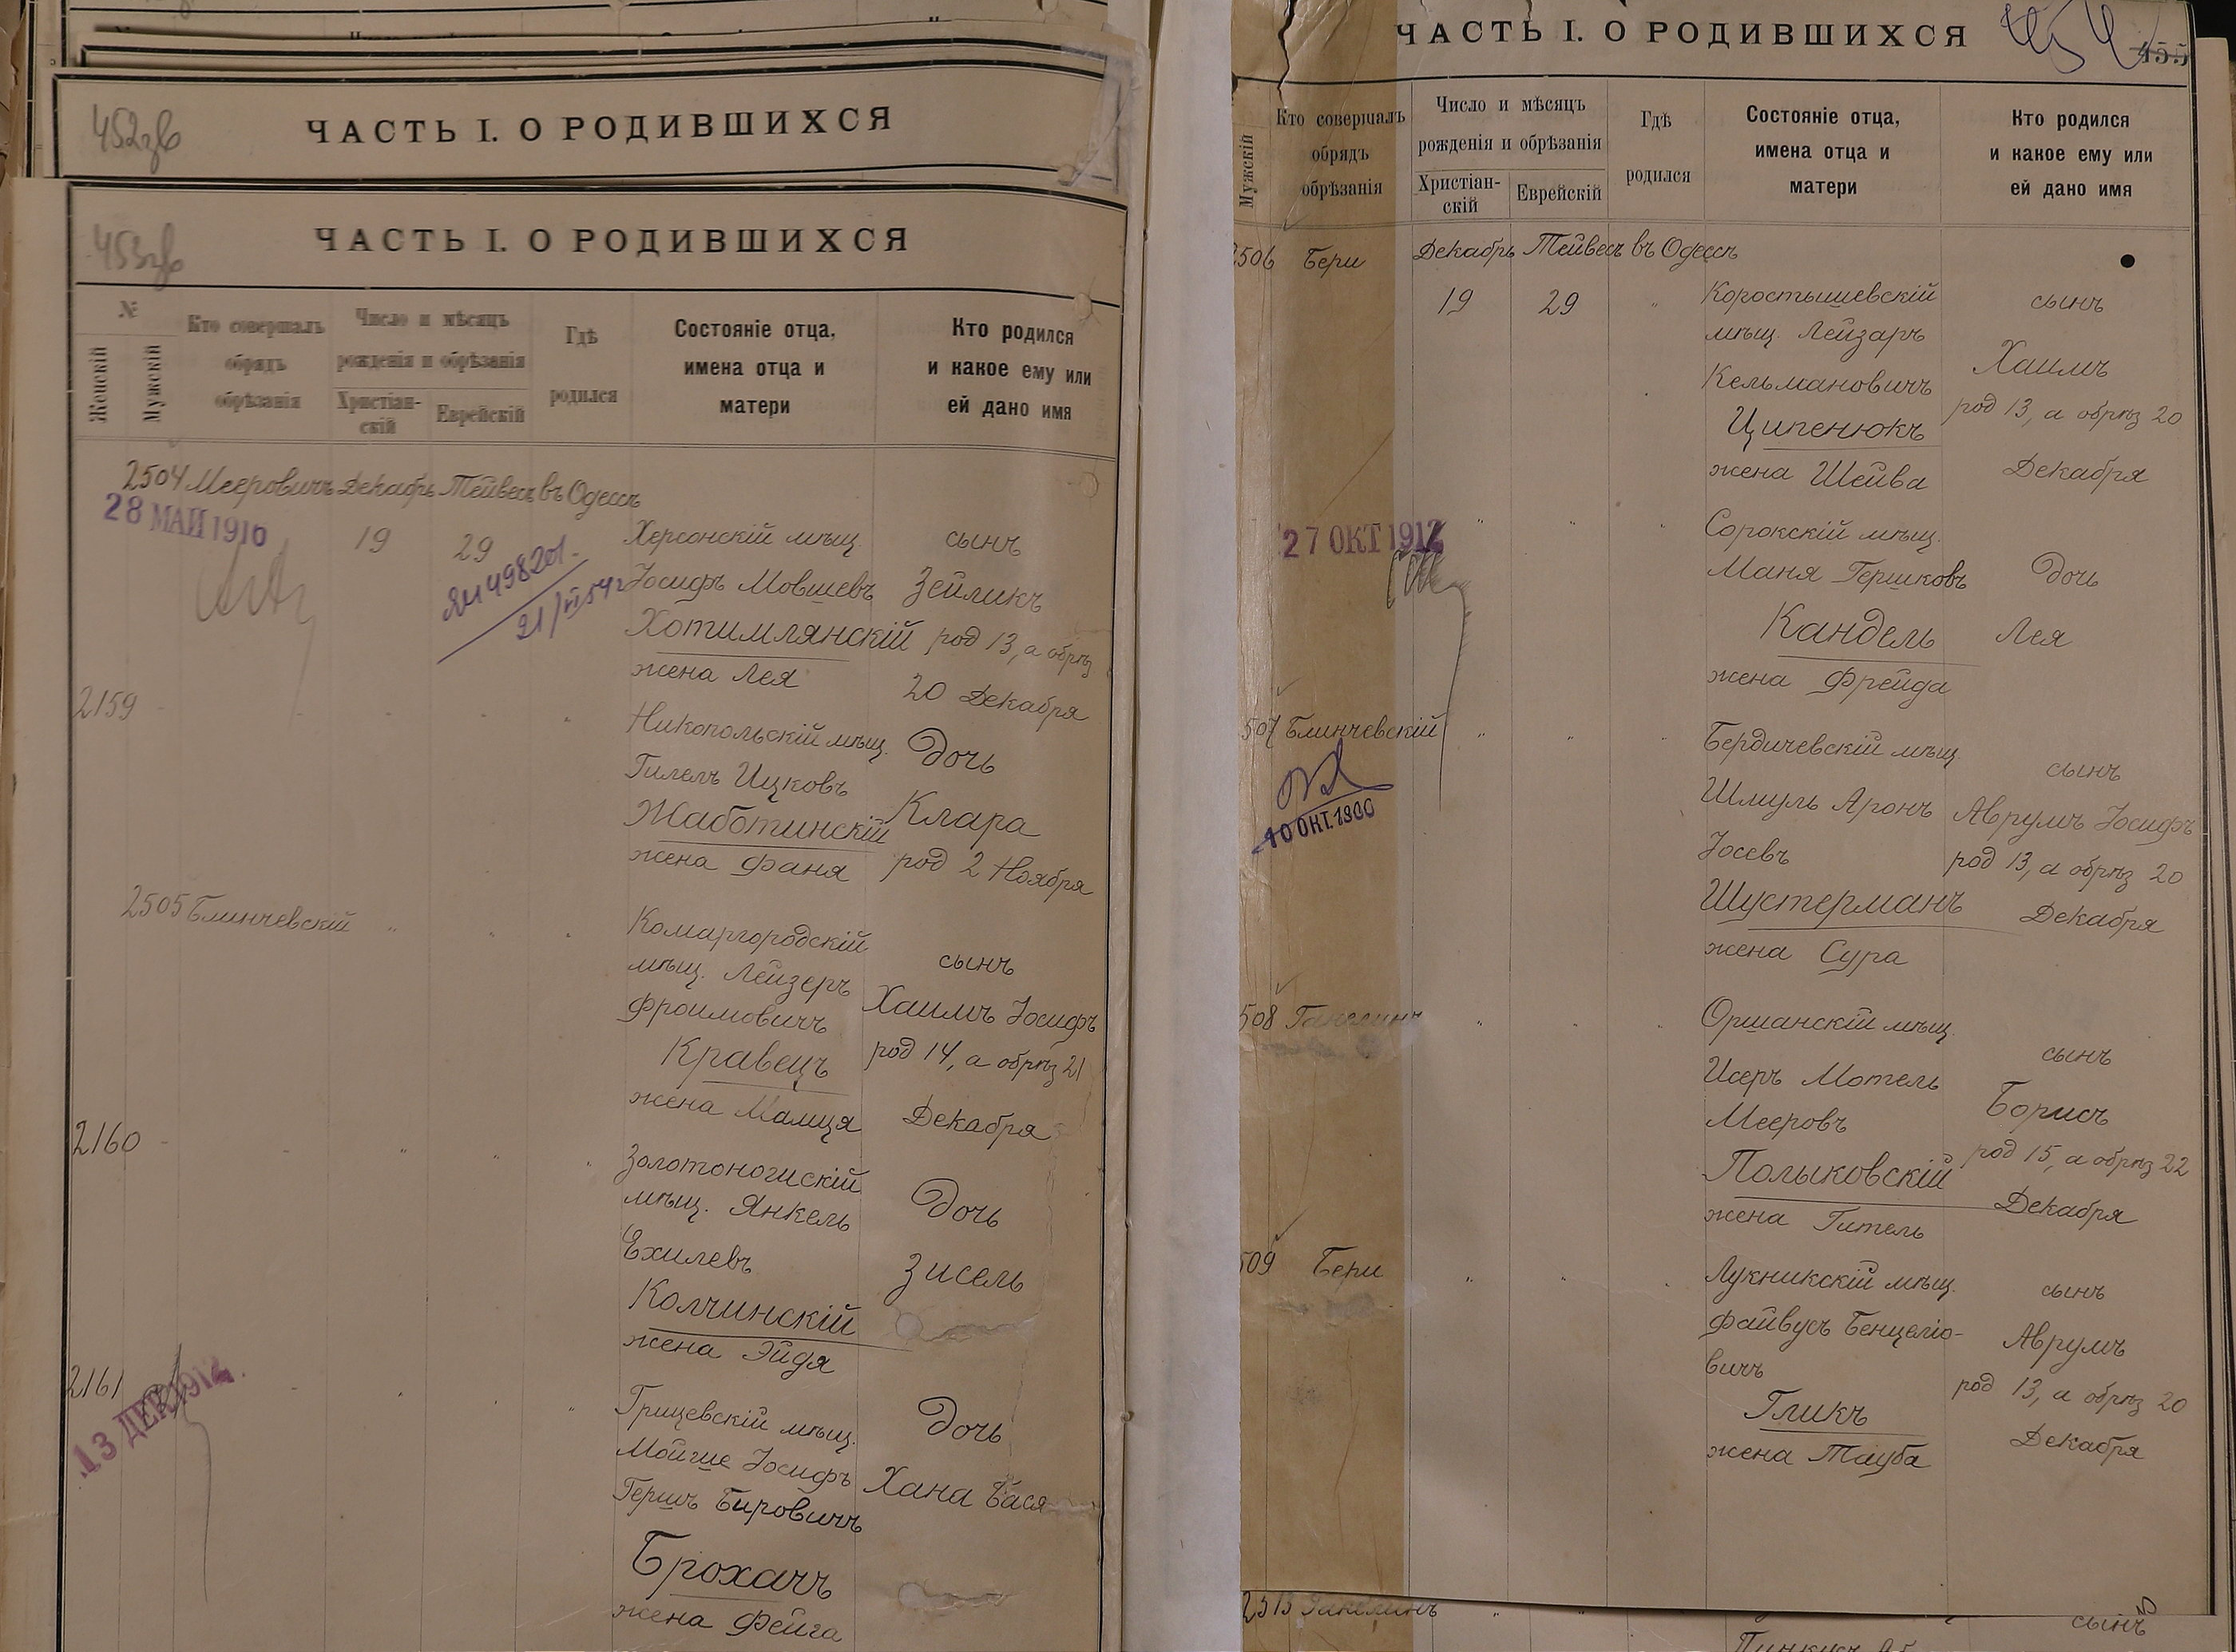 452зв
ЧАСТЬ I. О РОДИВШИХСЯ
453зв
ЧАСТЬ I. О РОДИВШИХСЯ
№
Женскій
Мужскій
Кто совершалъ
обрядъ
обрѣзанія
Число и мѣсяцъ
рожденія и обрѣзанія
Христіан-
скій
Еврейскій
Гдѣ
родился
Состояніе отца,
имена отца и
матери
Кто родился
и какое ему или
ей дано имя
2504 Мееровичъ Декабрь Тейвесъ въ Одессѣ
28 МАЙ 1910
19
29
ЯИ 498201
21/VI 54г
Херсонскій мѣщ.
Іосифъ Мовшевъ
Хотимлянскій
жена Лея
сынъ
Зейликъ
род 13, а обрѣз
20 Декабря
2159
Никопольскій мѣщ.
Гилель Ицковъ
Жаботинскій
жена Фаня
Дочь
Клара
род 2 Ноября
2505 Блинчевскій
Комаргородскій
мѣщ. Лейзеръ
Фроимовичъ
Кравецъ
жена Мамця
сынъ
Хаимъ Іосифъ
род 14, а обрѣз 21
Декабря
2160
Золотоногискій
мѣщ. Янкель
Ехилевъ
Колчинскій
жена Эйдя
Дочь
Зисель
2161
13 ДЕК 1912
Грицевскій мѣщ.
Мойше Іосифъ
Гершъ Бировичъ
Брохачъ
жена Фейга
Дочь
Хана Бася
ЧАСТЬ I. О РОДИВШИХСЯ
454
455
Мужскій
Кто совершалъ
обрядъ
обрѣзанія
Число и мѣсяцъ
рожденія и обрѣзанія
Христіан-
скій
Еврейскій
Гдѣ
родился
Состояніе отца,
имена отца и
матери
Кто родился
и какое ему или
ей дано имя
2506 Бери Декабрь Тейвесъ въ Одессѣ
19
29
Коростышевскій
мѣщ. Лейзаръ
Кельмановичъ
Ципенюкъ
жена Шейва
сынъ
Хаимъ
род 13, а обрѣз 20
Декабря
27 ОКТ 1912
Сорокскій мѣщ.
Маня Гершковъ
Кандель
жена Фрейда
Дочь
Лея
507 Блинчевскій
10 ОКТ. 1900
Бердичевскій мѣщ.
Шмуль Аронъ
Іосевъ
Шустерманъ
жена Сура
сынъ
Аврумъ Іосифъ
род 13, а обрѣз 20
Декабря
508 Ганелинъ
Оршанскій мѣщ.
Исеръ Мотель
Мееровъ
Полыковскій
жена Гитель
сынъ
Борисъ
род 15, а обрѣз 22
Декабря
509 Бери
Лукникскій мѣщ.
Файвусъ Бенцеліо-
вичъ
Гликъ
жена Тауба
сынъ
Аврумъ
род 13, а обрѣз 20
Декабря
2513 Ганелинъ
сынъ